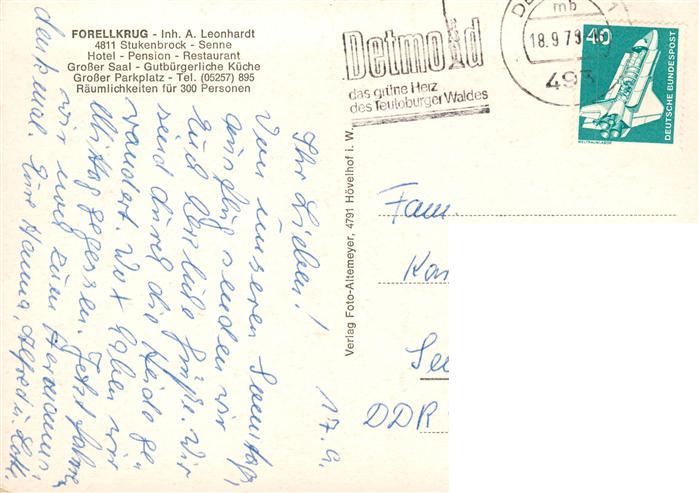 FORELLKRUG - Inh. A. Leonhardt
4811 Stukenbrock - Senne
Hotel - Pension - Restaurant
Großer Saal - Gutbürgerliche Küche
Großer Parkplatz - Tel. (05257) 895
Räumlichkeiten für 300 Personen
Detmold
das grüne Herz
des Teutoburger Waldes
DE
mb
18.9.79
493
40
DEUTSCHE BUNDESPOST
WELTRAUMLABOR
Verlag Foto-Altemeyer, 4791 Hövelhof i. W.
17. 9.
Ihr Lieben!
Von unseren Sonntags
ausflug senden wir
Euch liebe Grüße. Wir
sind durch die Heide ge
wandert. Wo haben wir
Mittag gegessen. Jetzt fahren
wir noch zum Hermanns
denkmal. Eure Hanna, Alfred u.
Fam.
DDR